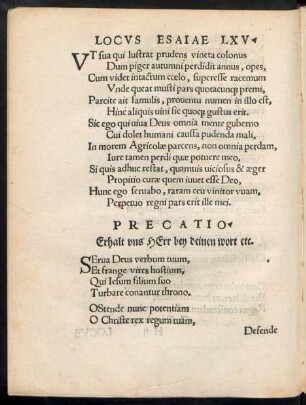 LOCVS ESAIAE LXV.
VT sua qui lustrat prudens vineta colonus
Dum piger autumni perdidit annus, opes,
Cum videt intactum cœlo, superesse racemum
Vnde queat musti pars quotacunqȝ premi,
Parcite ait famulis, prouentu numen in illo est,
Hinc aliquis uini sic quoqȝ gustus erit.
Sic ego qui uiua Deus omnia mente guberno
Cui dolet humani caussa pudenda mali,
In morem Agricolæ parcens, non omnia perdam,
Iure tamen perdi quæ potuere meo,
Si quis adhuc restat, quamuis uiciosus & æger
Propitio curæ quem iuuet esse Deo,
Hunc ego seruabo, raram ceu vinitor vuam,
Perpetuo regni pars erit ille mei.
PRECATIO
Erhalt vns HErr bey deinen wort etc.
SErua Deus verbum tuum,
Et frange vires hostium,
Qui Iesum filium suo
Turbare conantur throno.
OStende nunc potentiam
O Christe rex regum tuam,
Defende